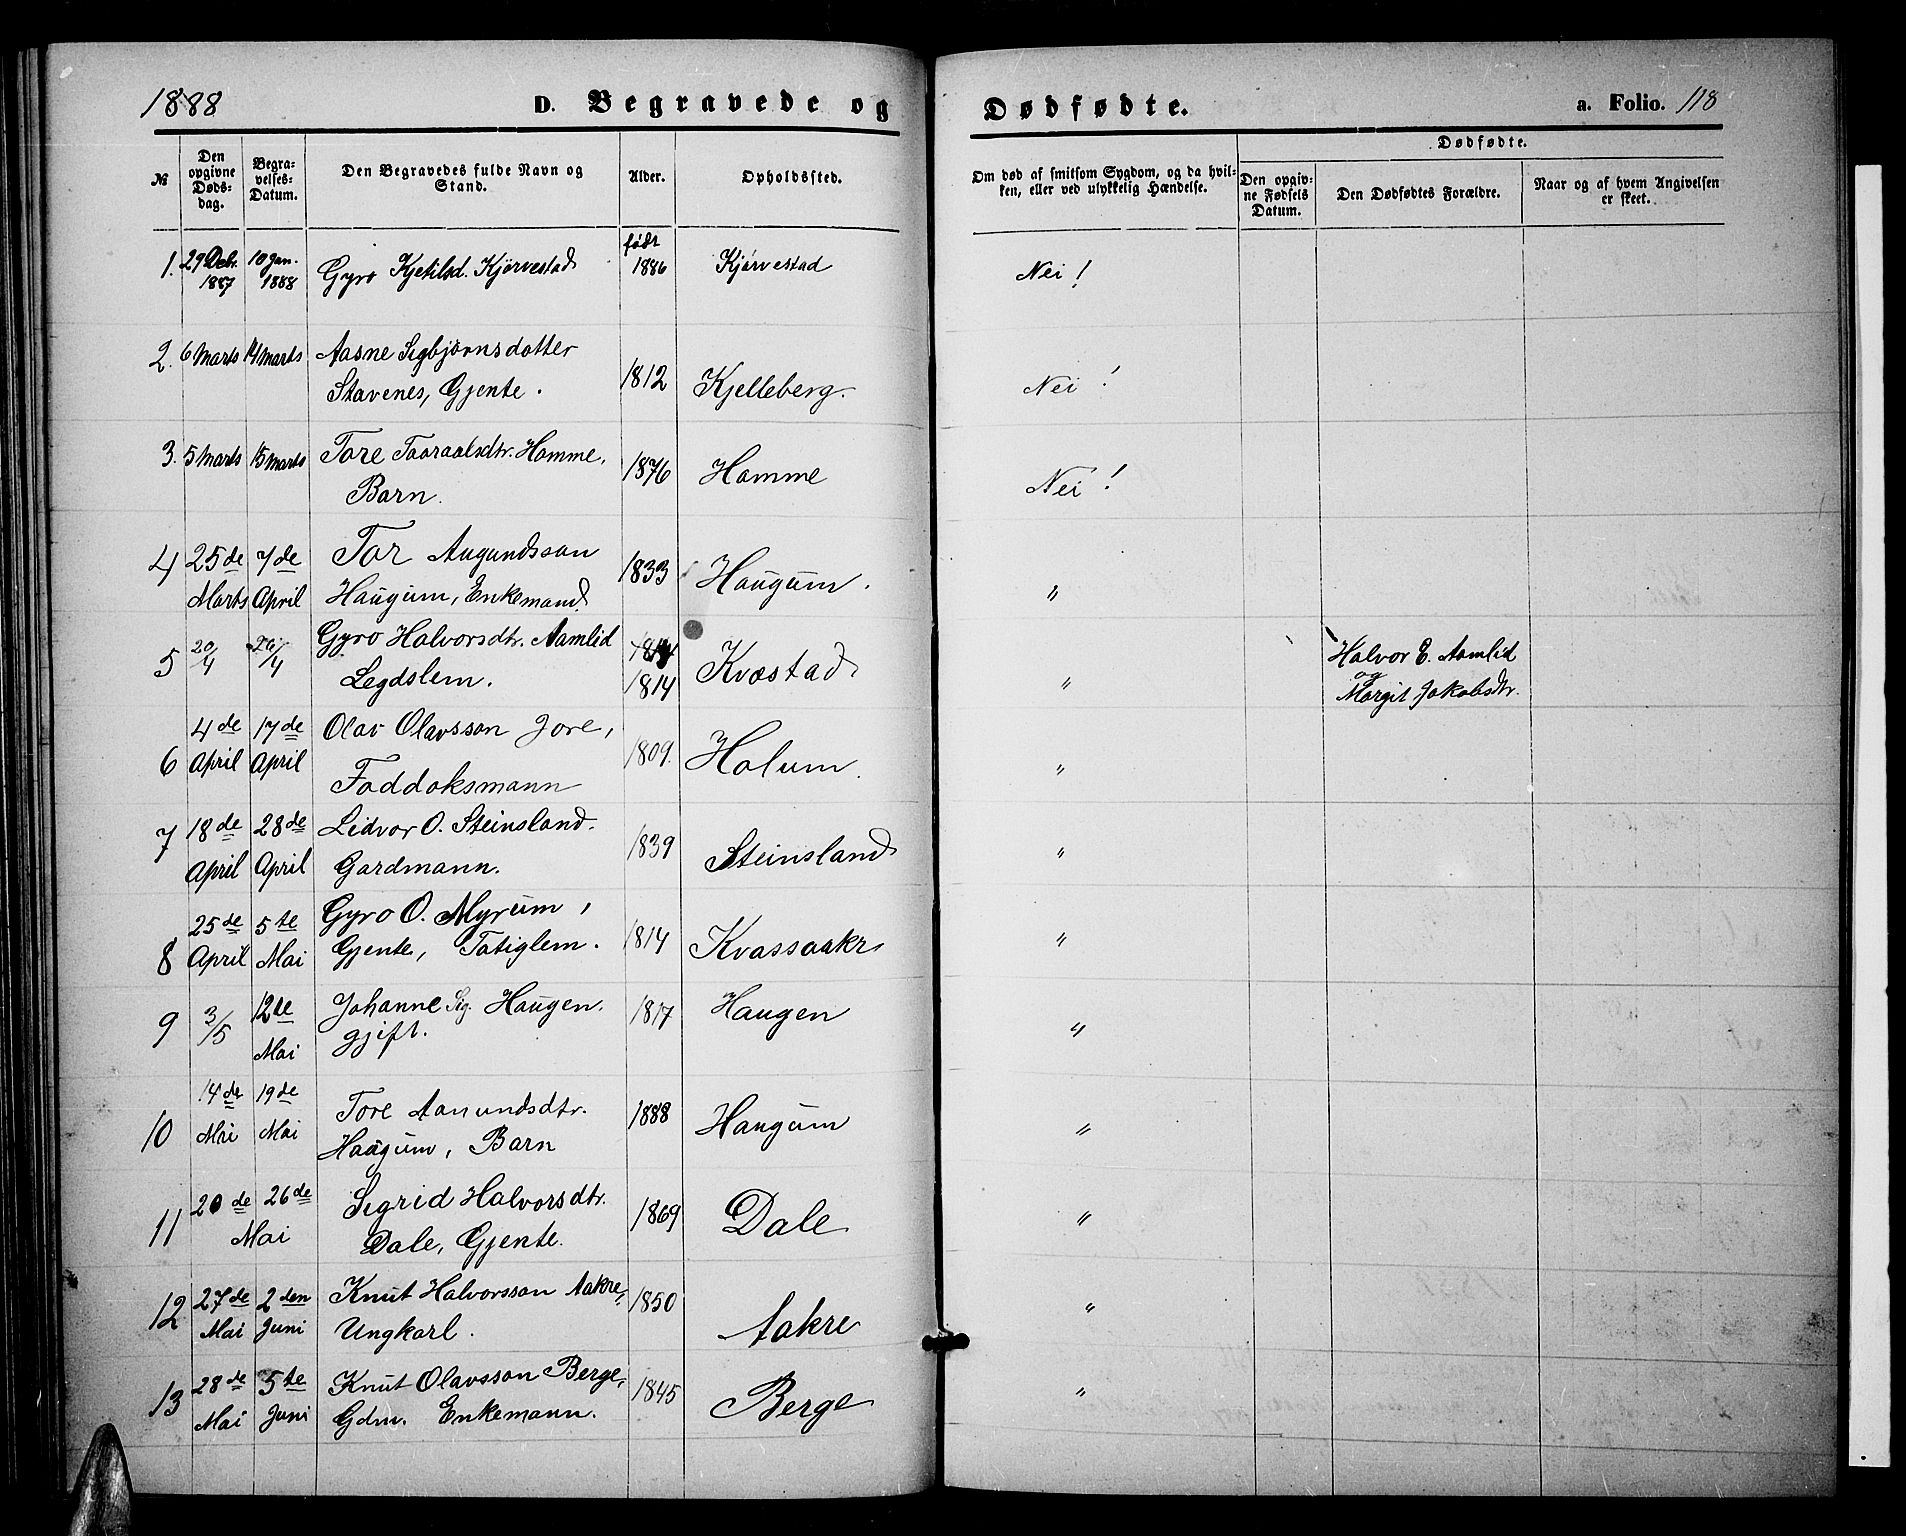 1888 D. Begravede og Dødfødte. a. Folio. 118
№
Den opgivne Døds-dag.
Begra-velses-Datum.
Den Begravedes fulde Navn og Stand.
Alder.
Opholdssted.
Om død af smitsom Sygdom, og da hvil-ken, eller ved ulykkelig Hændelse.
Dødfødte.
Den opgiv-ne Fødsels Datum.
Den Dødfødtes Forældre.
Naar og af hvem Angivelsen er skeet.
født
1. 29 Debr. 10 Jan. Gyro Kjetilsd. Kjørvestad 1886 Kjørvestad Nei!
1887 1888
2. 6 Marts 14 Marts Aasne Sigbjørnsdotter
Stavenes, Gjente. 1812 Kjelleberg. Nei!
3. 5 Marts 15 Marts Tore Taaraalsdtr. Homme,
Barn. 1876 Homme Nei!
4 25de 7de Tor Augundsson 1833 Haugum. "
Marts April Haugum, Enkemand
5 20/4 Gyro Halvorsdtr. Aamlid Kvæstad Halvor E. Aamlid
og
Legdslem. 1814 " Margit Jakobsdtr.
4de 17de Olav Olavsson Jore,
6 April April 1809. Holum. "
Foddoksmann
7 18de 28de Lidvor O. Steinsland. 1839 Steinsland "
April April Gardmann.
25de 5te Gyro O. Myrum,
8 April Mai Gjente, Fatiglem. 1814 Kvassaakr "
9 3/5 12de Johanne Sig. Haugen. 1817 Haugen "
Mai gjift.
14de 19de Tore Aanundsdtr. 1888 Haugum "
10 Mai Mai Haugum, Barn
11 20de 26de Sigrid Halvorsdtr. 1869 Dale "
Mai Dale, Gjente.
12 27de 2den Knut Halvorsson Aakre, 1850 Aakre "
Mai Juni Ungkarl.
13 28de 5te Knut Olavsson Berge, 1845 Berge "
Mai Juni Gdm. Enkemann.